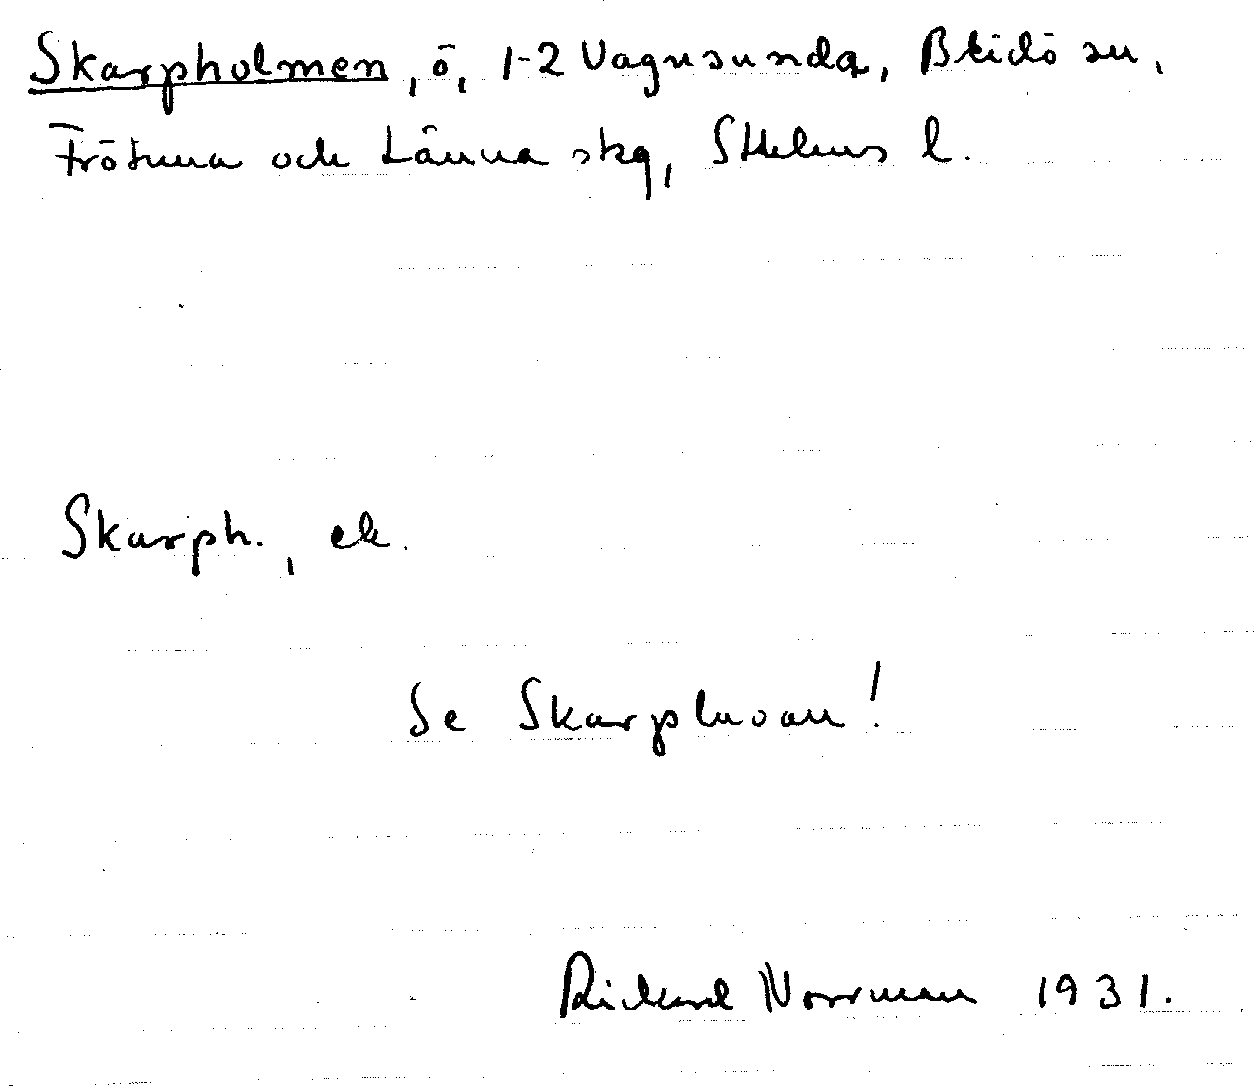 Skarpholmen, ö, 1-2 Vagnsunda, Blidö sn,
Frötuna och Länna skg, Sthlms l.
Skarph., ek.
Se Skarphvoan!
Rickard Norrman 1931.